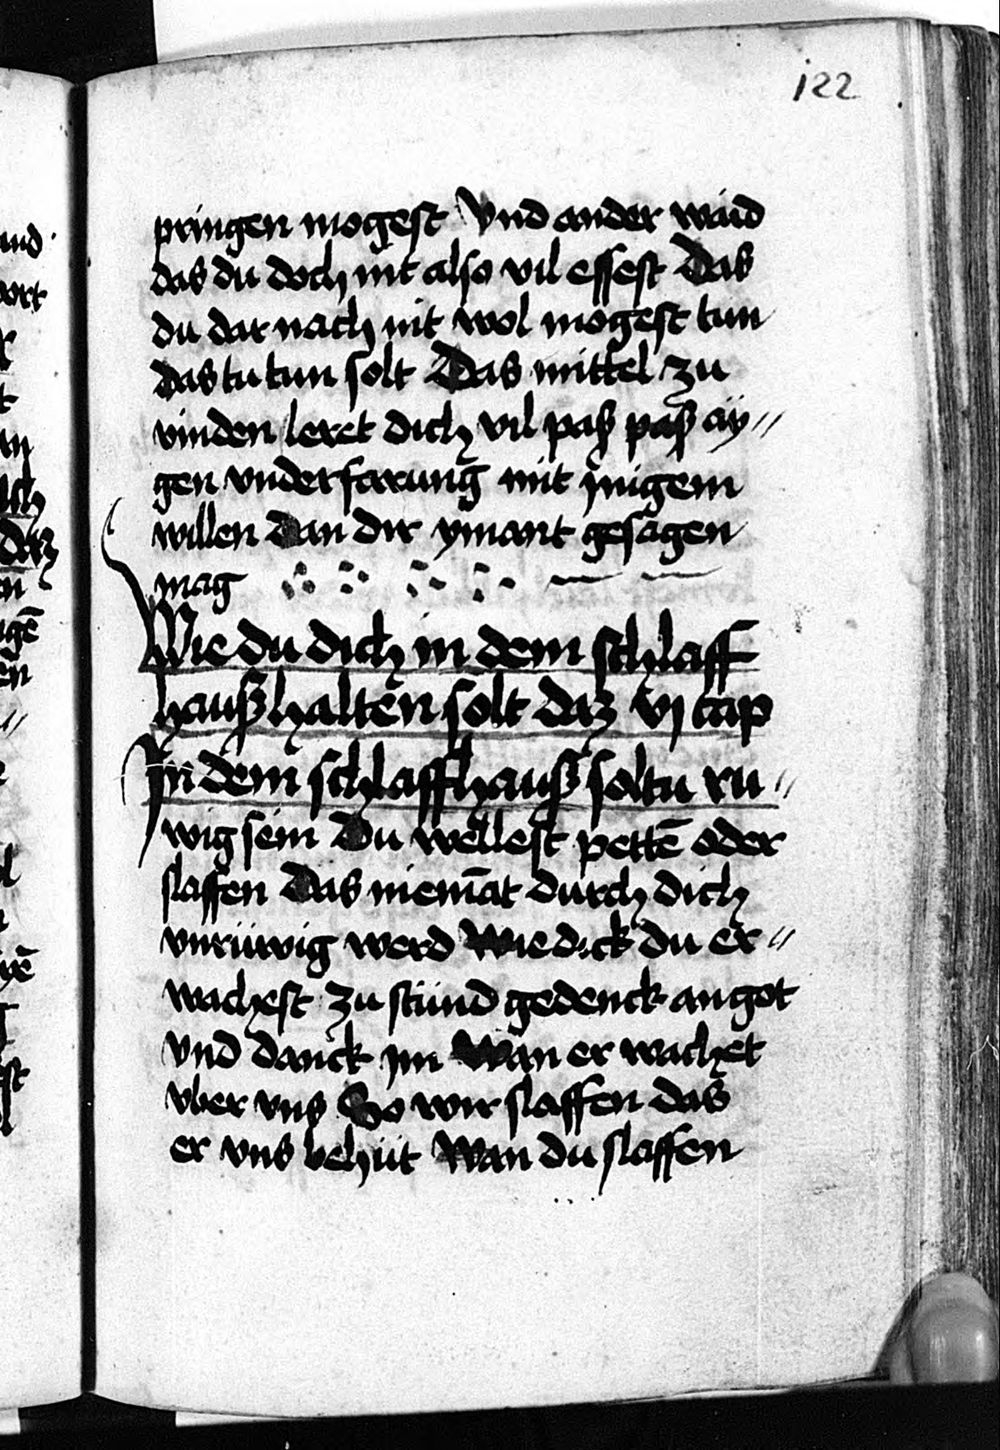 122
pringen mogest Vnd ander waid
das du doch nit also vil essest Das
du dar nach nit wol mogest tun
das tu tun solt Das mittel zu
vinden leret dich vil paß paß ay〃
gen vnderfarung mit jnigem
willen Dan dir ymant gesagen
mag
Wie du dich in dem schlaff
hauß halten solt daz vj cap
In dem schlaffhauß soltu ru〃
wig sein Du wellest pettē oder
slaffen Das niemāt durch dich
vnrüwig werd Wie dick du er〃
wachest zu stund gedenck an got
vnd danck jm Wan er wachet
vber vns So wir slaffen das
er vns behüt Wan du slaffen